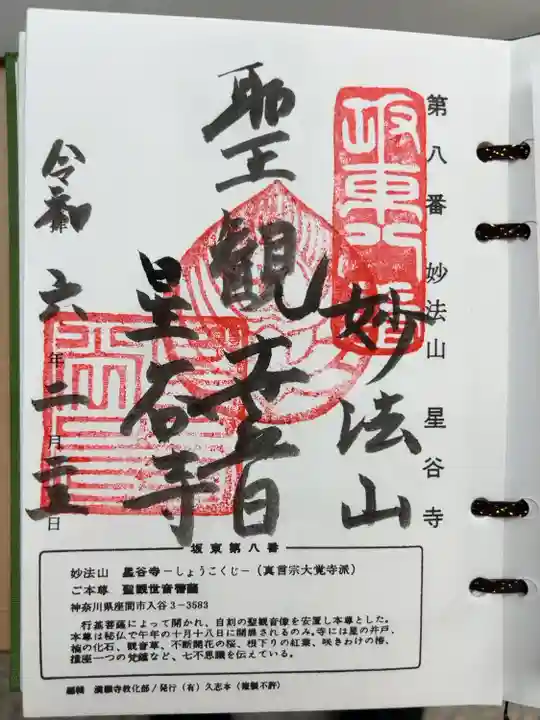 第八番 妙法山 星谷寺
妙法山
聖観世音
星谷寺
令和 六年 二月 十二日
坂東第八番
妙法山 星谷寺－しょうこくじ－（真言宗大覚寺派）
ご本尊 聖観世音菩薩
神奈川県座間市入谷３－３５８３
行基菩薩によって開かれ、自刻の聖観音像を安置し本尊とした。
本尊は秘仏で午年の十月十八日に開扉されるのみ。寺には星の井戸、
楠の化石、観音草、不断開花の桜、根下りの紅葉、咲きわけの椿、
撞座一つの梵鐘など、七不思議を伝えている。
編輯 満願寺教化部／発行（有）久志本（複製不許）